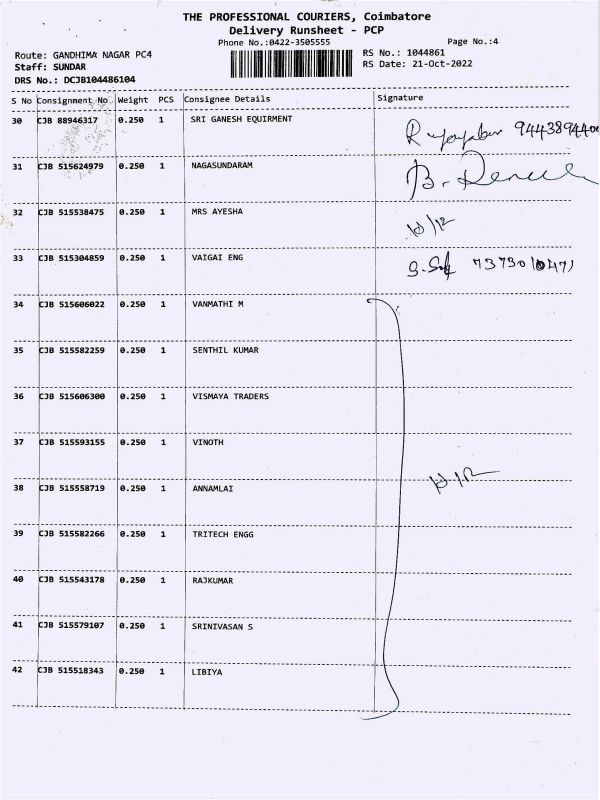 THE PROFESSIONAL COURIERS, Coimbatore
Delivery Runsheet - PCP
Phone No.:0422-3505555
Page No.:4
Route: GANDHIMA NAGAR PC4
RS No.: 1044861
Staff: SUNDAR
RS Date: 21-Oct-2022
DRS No.: DCJB104486104
S No Consignment No Weight PCS Consignee Details Signature
30 CJB 88946317 0.250 1 SRI GANESH EQUIRMENT
31 CJB 515624979 0.250 1 NAGASUNDARAM
32 CJB 515538475 0.250 1 MRS AYESHA
33 CJB 515304859 0.250 1 VAIGAI ENG
34 CJB 515606022 0.250 1 VANMATHI M
35 CJB 515582259 0.250 1 SENTHIL KUMAR
36 CJB 515606300 0.250 1 VISMAYA TRADERS
37 CJB 515593155 0.250 1 VINOTH
38 CJB 515558719 0.250 1 ANNAMLAI
39 CJB 515582266 0.250 1 TRITECH ENGG
40 CJB 515543178 0.250 1 RAJKUMAR
41 CJB 515579107 0.250 1 SRINIVASAN S
42 CJB 515518343 0.250 1 LIBIYA